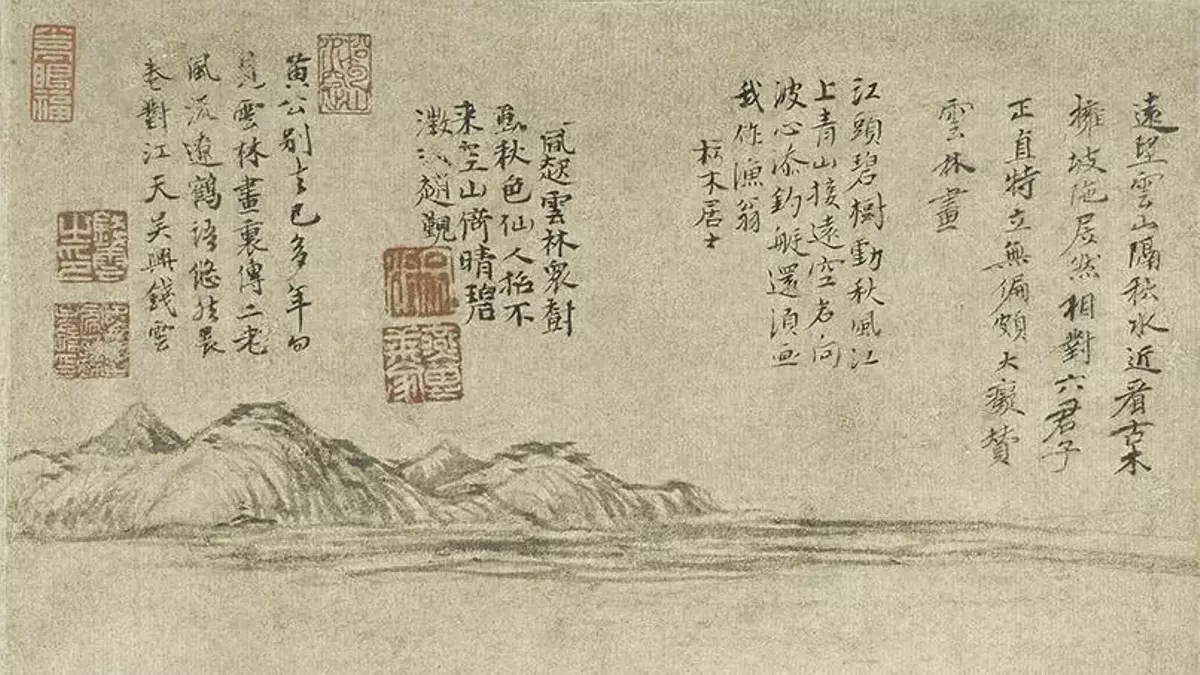 遠望雲山隔秋水近看古木
擁坡陁居然相對六君子
正直特立無偏頗大癡贊
雲林畫
江頭碧樹動秋風江
上青山接遠空若向
波心添釣艇還須畫
我作漁翁
朽木居士
風起雲林樹
秋色仙人招不
来空山倚晴碧
澂江趙覲
黄公别去已多年忽
見雲林畫裏傳二老
風流遼鶴語悠然展
卷對江天吴興錢雲